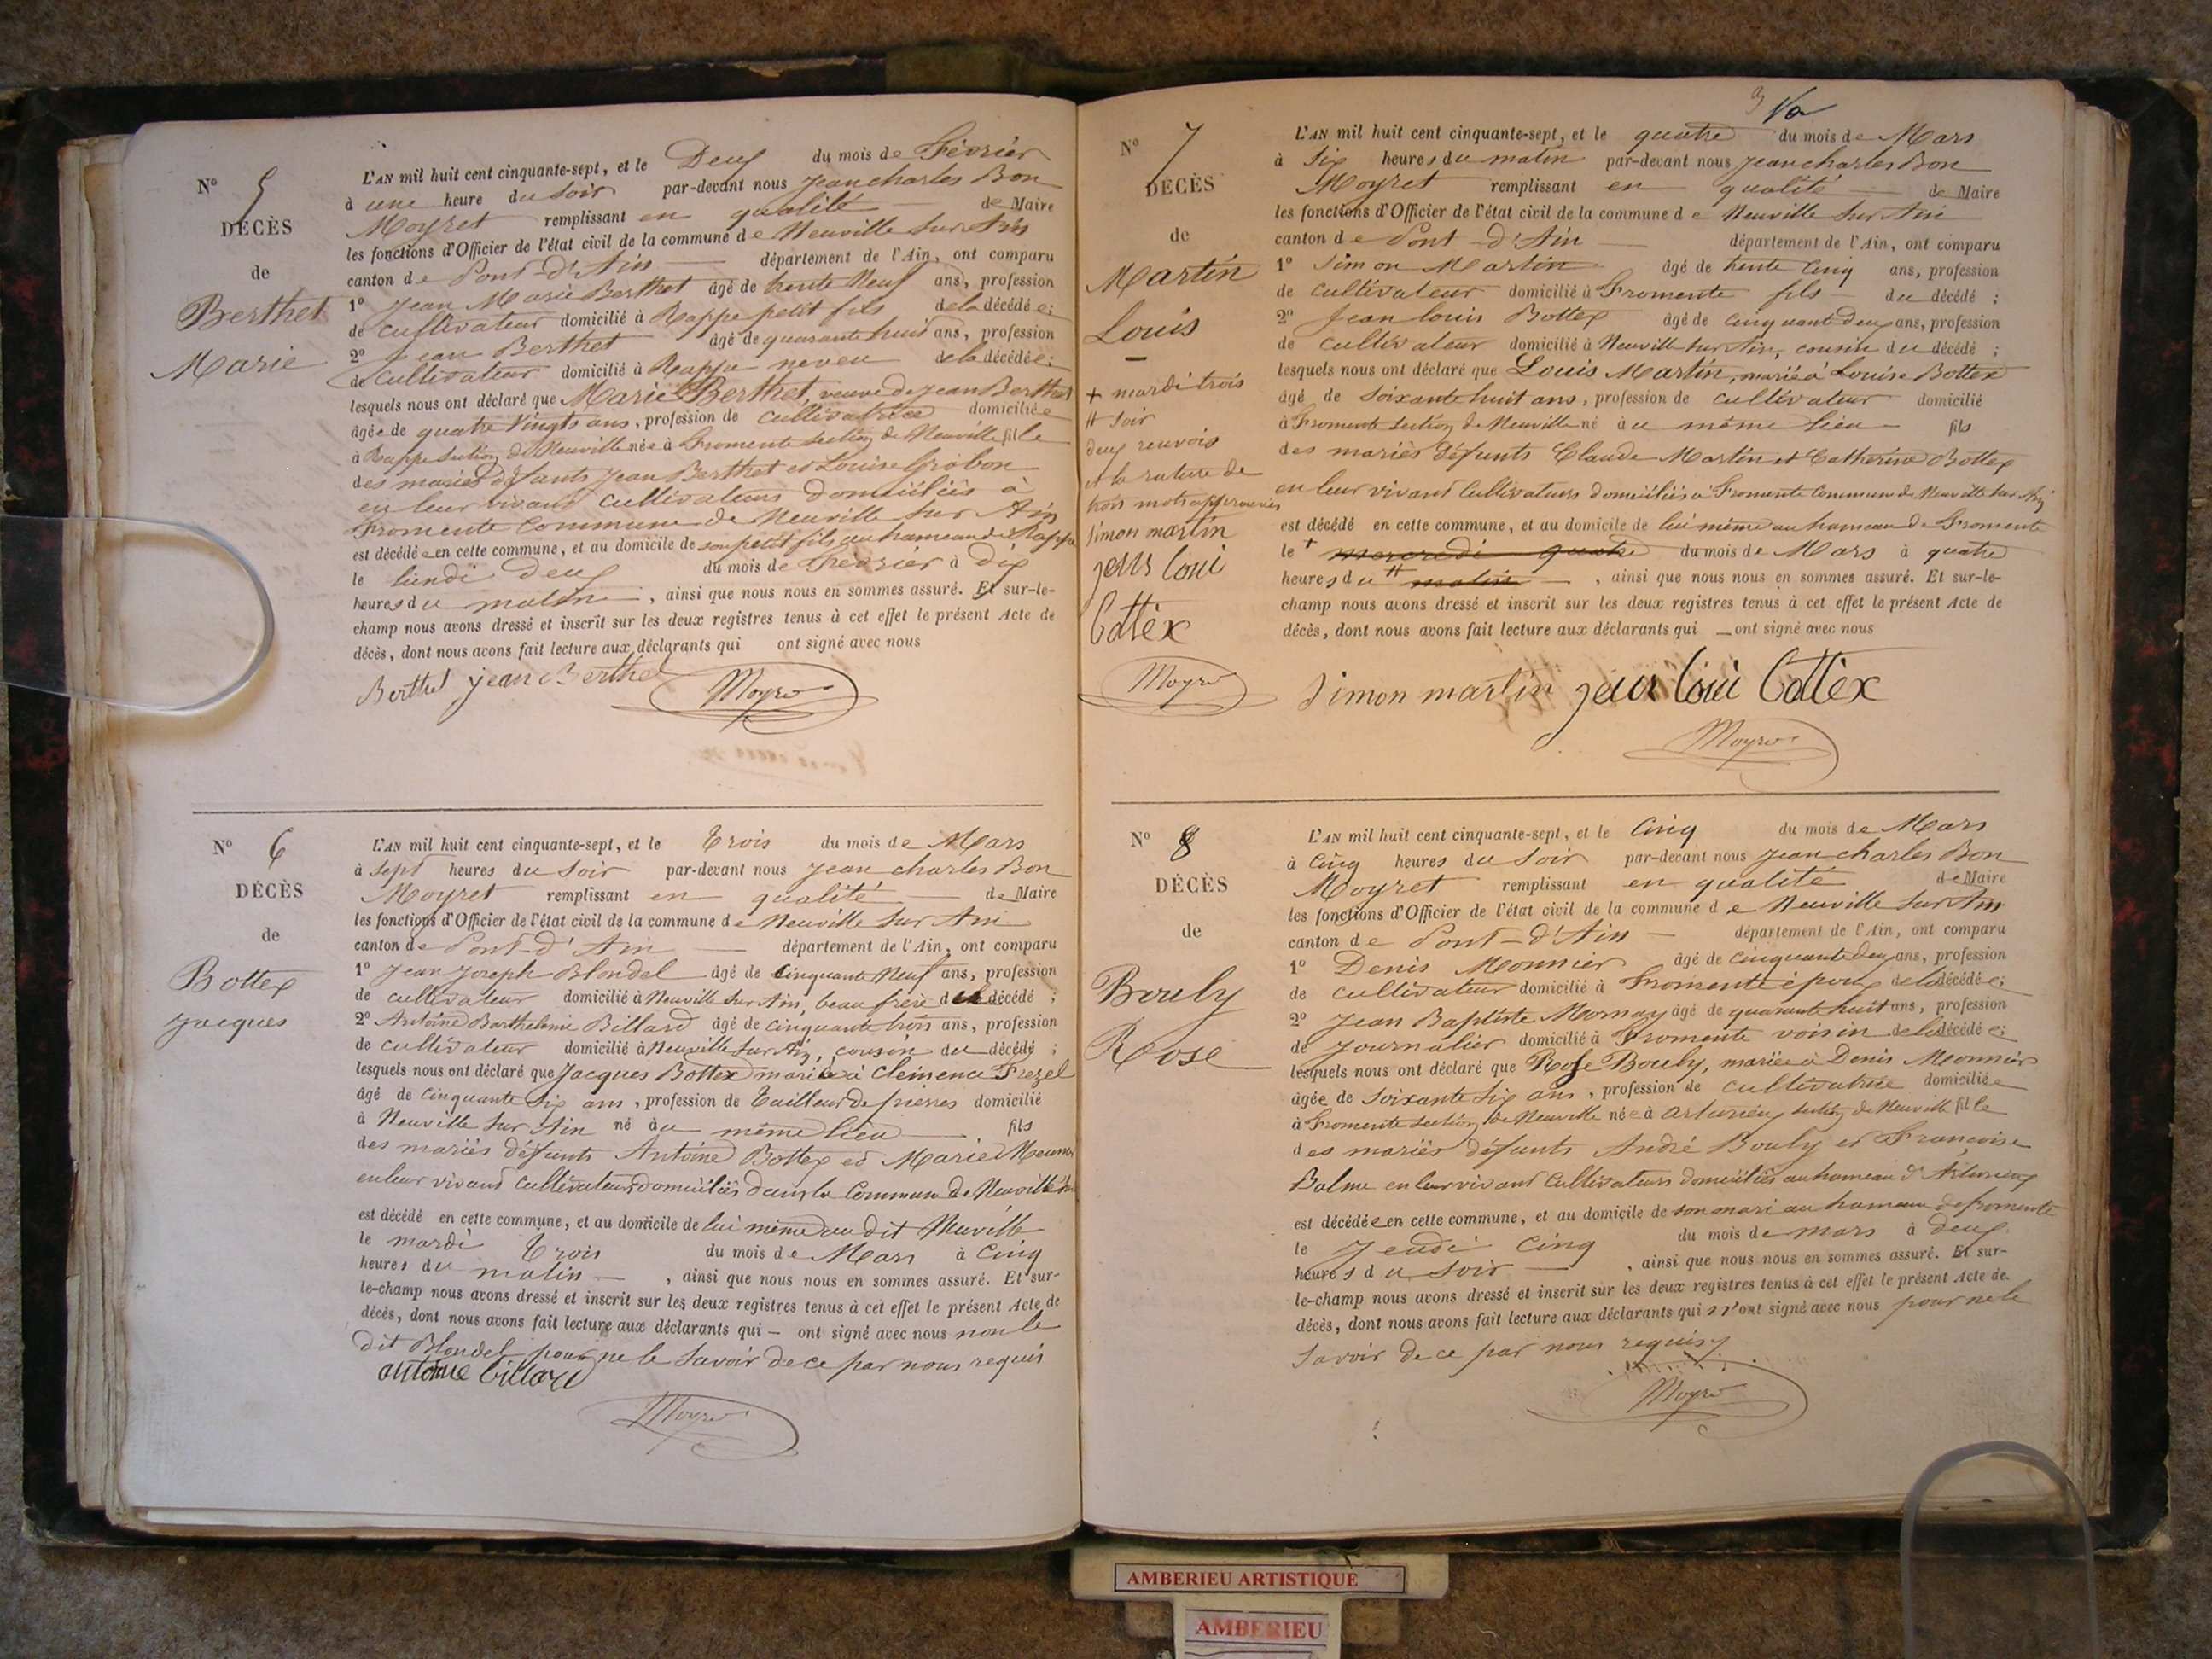 N° 5
DÉCÈS
de
Berthet
Marie
L'AN mil huit cent cinquante-sept, et le Deux du mois de Février
à une heure du soir par-devant nous Jean charles Bon
Moyret remplissant en qualité de Maire
les fonctions d'Officier de l'état civil de la commune de Neuville sur Ain
canton de Pont-d'Ain département de l'Ain, ont comparu
1° Jean Marie Berthet âgé de trente Neuf ans, profession
de cultivateur domicilié à Rappe petit fils de la décédée;
2° Jean Berthet âgé de quarante huit ans, profession
de cultivateur domicilié à Rappe neveu de la décédée;
lesquels nous ont déclaré que Marie Berthet, veuve de Jean Berthet
âgée de quatre Vingts ans, profession de cultivatrice domiciliée
à Rappe section de Neuville née à Fromente section de Neuville fille
des mariés défunts Jean Berthet et Louise Grobon
en leur vivant cultivateurs domiciliés à
Fromente commune de Neuville sur Ain
est décédée en cette commune, et au domicile de son petit fils au hameau de Rappe
le lundi deux du mois de Février à dix
heures du matin, ainsi que nous nous en sommes assuré. Et sur-le-
champ nous avons dressé et inscrit sur les deux registres tenus à cet effet le présent Acte de
décès, dont nous avons fait lecture aux déclarants qui ont signé avec nous
Berthet jean Berthet Moyret
N° 6
DÉCÈS
de
Bottex
Jacques
L'AN mil huit cent cinquante-sept, et le Trois du mois de Mars
à sept heures du soir par-devant nous Jean charles Bon
Moyret remplissant en qualité de Maire
les fonctions d'Officier de l'état civil de la commune de Neuville sur Ain
canton de Pont-d'Ain département de l'Ain, ont comparu
1° Jean Joseph Blondel âgé de Cinquante Neuf ans, profession
de cultivateur domicilié à Neuville sur Ain, beau frère du décédé;
2° Antoine Barthelemie Billard âgé de cinquante trois ans, profession
de cultivateur domicilié à Neuville sur Ain, cousin du décédé;
lesquels nous ont déclaré que Jacques Bottex marié à Clémence Frezel
âgé de cinquante six ans, profession de Tailleur de pierres domicilié
à Neuville sur Ain né au même lieu fils
des mariés défunts Antoine Bottex et Marie
en leur vivant cultivateurs domiciliés dans la Commune de Neuville
est décédé en cette commune, et au domicile de lui même au dit Neuville
le mardi Trois du mois de Mars à cinq
heures du matin, ainsi que nous nous en sommes assuré. Et sur-
le-champ nous avons dressé et inscrit sur les deux registres tenus à cet effet le présent Acte de
décès, dont nous avons fait lecture aux déclarants qui – ont signé avec nous non le
dit Blondel pour ne le savoir de ce par nous requis
antoine billard
Moyret
N° 7
DÉCÈS
de
Martin
Louis
+ mardi trois
# soir
deux renvois
et la rature de
trois mots approuvés
simon martin
jean loui
Cottex
Moyret
L'AN mil huit cent cinquante-sept, et le quatre du mois de Mars
à six heures du matin par-devant nous Jean charles Bon
Moyret remplissant en qualité de Maire
les fonctions d'Officier de l'état civil de la commune de Neuville sur Ain
canton de Pont-d'Ain département de l'Ain, ont comparu
1° Simon Martin âgé de trente cinq ans, profession
de cultivateur domicilié à Fromente fils du décédé;
2° Jean louis Bottex âgé de cinquante deux ans, profession
de cultivateur domicilié à Neuville sur Ain, cousin du décédé;
lesquels nous ont déclaré que Louis Martin, marié à Louise Bottex
âgé de soixante huit ans, profession de cultivateur domicilié
à Fromente section de Neuville né au même lieu fils
des mariés défunts Claude Martin et Catherine Bottex
en leur vivant cultivateurs domiciliés à Fromente Commune de Neuville sur Ain
est décédé en cette commune, et au domicile de lui même au hameau de Fromente
le + mercredi quatre du mois de Mars à quatre
heures du # matin, ainsi que nous nous en sommes assuré. Et sur-le-
champ nous avons dressé et inscrit sur les deux registres tenus à cet effet le présent Acte de
décès, dont nous avons fait lecture aux déclarants qui – ont signé avec nous
Simon martin jean loui Cottex
Moyret
N° 8
DÉCÈS
de
Bouly
Rose
L'AN mil huit cent cinquante-sept, et le Cinq du mois de Mars
à cinq heures du soir par-devant nous Jean charles Bon
Moyret remplissant en qualité de Maire
les fonctions d'Officier de l'état civil de la commune de Neuville sur Ain
canton de Pont-d'Ain département de l'Ain, ont comparu
1° Denis Monnier âgé de cinquante deux ans, profession
de cultivateur domicilié à Fromente époux de la décédée;
2° Jean Baptiste Mornay âgé de quarante huit ans, profession
de journalier domicilié à Fromente voisin de la décédée;
lesquels nous ont déclaré que Rose Bouly, mariée à Denis Monnier
âgée de soixante six ans, profession de cultivatrice domiciliée
à Fromente section de Neuville née à Arturieux section de Neuville fille
des mariés défunts André Bouly et Françoise
Balme en leur vivant cultivateurs domiciliés au hameau d'Arturieux
est décédée en cette commune, et au domicile de son mari au hameau de fromente
le Jeudi Cinq du mois de mars à deux
heures du soir, ainsi que nous nous en sommes assuré. Et sur-
le-champ nous avons dressé et inscrit sur les deux registres tenus à cet effet le présent Acte de
décès, dont nous avons fait lecture aux déclarants qui n'ont signé avec nous pour ne le
savoir de ce par nous requis
Moyret
AMBERIEU ARTISTIQUE
AMBERIEU